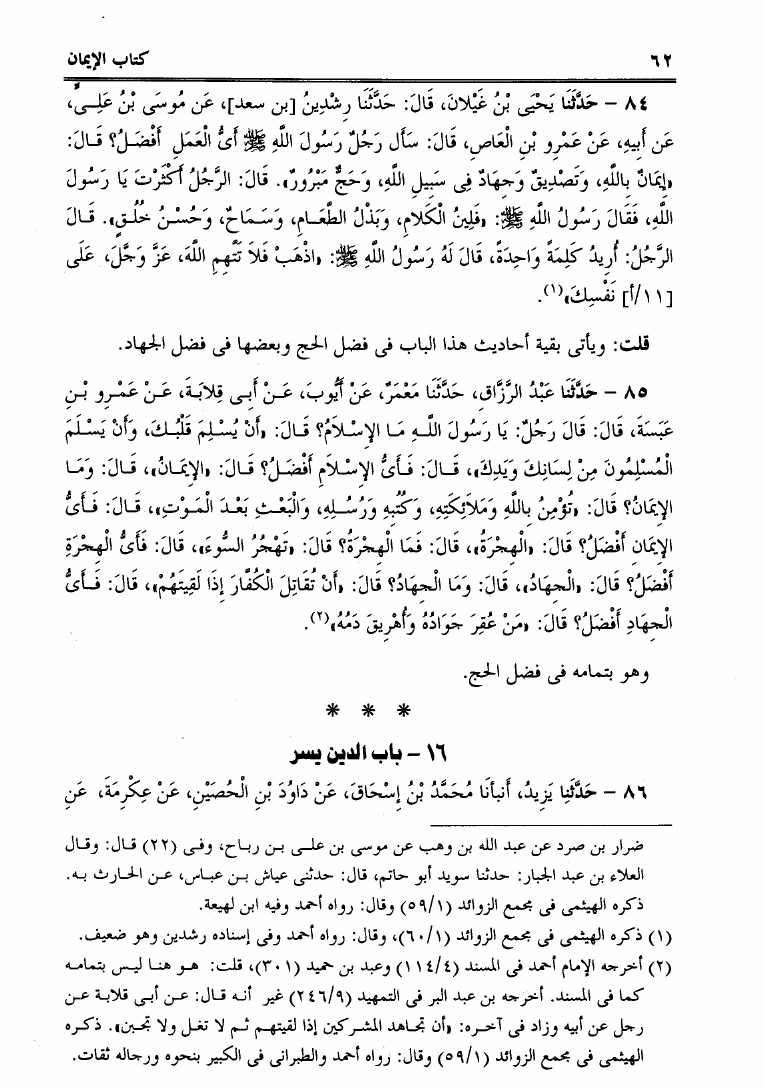 ٦٢ كتاب الإيمان
٨٤ – حَدَّثَنَا يَحْيَى بْنُ غَيْلانَ، قَالَ: حَدَّثَنَا رِشْدِينُ [بن سعد]، عَن مُوسَى بْنُ عَلِـى،
عَن أَبِيهِ، عَنْ عَمْرِو بْنِ الْعَاصِ، قَالَ: سَأَل رَجُلٌ رَسُولَ اللَّهِ ﷺ أَىُّ الْعَمَلِ أَفْضَـلُ؟ قَـالَ:
«إِيمَانٌ بِاللَّهِ، وَتَصْدِيقٌ وَجِهَادٌ فِى سَبِيلِ اللَّهِ، وَحَجٌّ مَبْرُورٌ». قَالَ: الرَّجُلُ أَكْثَرْتَ يَا رَسُولَ
اللَّهِ، فَقَالَ رَسُولُ اللَّهِ ﷺ: «فَلِينُ الْكَلامِ، وَبَذْلُ الطَّعَـامِ، وَسَـمَاحٌ، وَحُسْـنُ خُلُـقٍ». قَـالَ
الرَّجُلُ: أُرِيدُ كَلِمَةً وَاحِدَةً، قَالَ لَهُ رَسُولُ اللَّهِ ﷺ: «اذْهَبْ فَلاَ تَتَّهِمِ اللَّهَ، عَزَّ وَجَلَّ، عَلَى
[١١/أ] نَفْسِكَ»(١).
قلت: ويأتى بقية أحاديث هذا الباب فى فضل الحج وبعضها فى فضل الجهاد.
٨٥ – حَدَّثَنَا عَبْدُ الرَّزَّاقِ، حَدَّثَنَا مَعْمَرٌ، عَنْ أَيُّوبَ، عَـنْ أَبِـى قِلابَـةَ، عَـنْ عَمْـرِو بْـنِ
عَبَسَةَ، قَالَ: قَالَ رَجُلٌ: يَا رَسُولَ اللَّـهِ مَـا الإِسْـلاَمُ؟ قَـالَ: «أَنْ يُسْـلِمَ قَلْبُـكَ، وَأَنْ يَسْـلَمَ
الْمُسْلِمُونَ مِنْ لِسَانِكَ وَيَدِكَ»، قَـالَ: فَـأَىُّ الإِسْـلامِ أَفْضَـلُ؟ قَـالَ: «الإِيمَـانُ»، قَـالَ: وَمَـا
الإِيمَانُ؟ قَالَ: «تُؤْمِنُ بِاللَّهِ وَمَلاَئِكَتِهِ، وَكُتُبِهِ وَرُسُـلِهِ، وَالْبَعْـثِ بَعْـدَ الْمَـوْتِ»، قَـالَ: فَـأَىُّ
الإِيمَانِ أَفْضَلُ؟ قَالَ: «الْهِجْرَةُ»، قَالَ: فَمَا الْهِجْرَةُ؟ قَالَ: «تَهْجُرُ السُّوءَ»، قَالَ: فَأَىُّ الْهِجْرَةِ
أَفْضَلُ؟ قَالَ: «الْجِهَادُ»، قَالَ: وَمَا الْجِهَادُ؟ قَالَ: «أَنْ تُقَاتِلَ الْكُفَّارَ إِذَا لَقِيتَهُمْ»، قَالَ: فَـأَىُّ
الْجِهَادِ أَفْضَلُ؟ قَالَ: «مَنْ عُقِرَ جَوَادُهُ وَأُهْرِيقَ دَمُهُ»(٢).
وهو بتمامه فى فضل الحج.
* * *
١٦ – باب الدين يسر
٨٦ – حَدَّثَنِا يَزِيدُ، أَنبأنَا مُحَمَّدُ بْنُ إِسْحَاقَ، عَنْ دَاوُدَ بْنِ الْحُصَيْنِ، عَنْ عِكْرِمَةَ، عَنِ
ضرار بن صرد عن عبد الله بن وهب عن موسى بن علـى بـن ربـاح، وفـى (٢٢) قـال: وقـال
العلاء بن عبد الجبار: حدثنا سويد أبو حاتم، قال: حدثنى عياش بـن عبـاس، عـن الحـارث بـه.
ذكره الهيثمى فى مجمع الزوائد (٥٩/١) وقال: رواه أحمد وفيه ابن لهيعة.
(١) ذكره الهيثمى فى مجمع الزوائد (٦٠/١)، وقال: رواه أحمد وفى إسناده رشدين وهو ضعيف.
(٢) أخرجه الإمام أحمد فى المسند (١١٤/٤) وعبد بن حميد (٣٠١)، قلت: هـو هنـا ليـس بتمامـه
كما فى المسند. أخرجه بن عبد البر فى التمهيد (٢٤٦/٩) غير أنـه قـال: عـن أبـى قلابـة عـن
رجل عن أبيه وزاد فى آخـره: «أن تجـاهد المشـركين إذا لقيتهـم ثـم لا تغـل ولا تجبـن». ذكـره
الهيثمى فى مجمع الزوائد (٥٩/١) وقال: رواه أحمد والطبرانى فى الكبير بنحوه ورجاله ثقات.